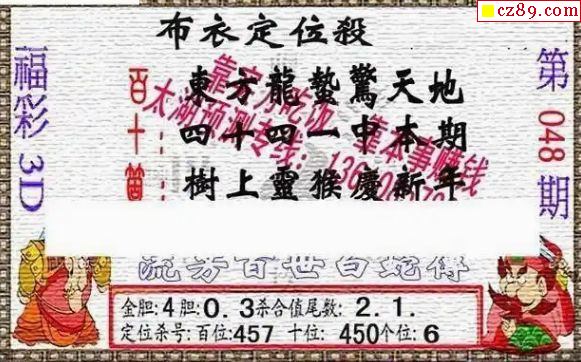 cz89.com
布衣定位殺
福彩3D
第048期
百：東方龍蟄驚天地
十：四十四一中本期
樹上靈猴慶新年
流芳百世白蛇傳
金胆:4胆:0.3杀合值尾数:2.1.
定位杀号:百位:457 十位:450个位:6